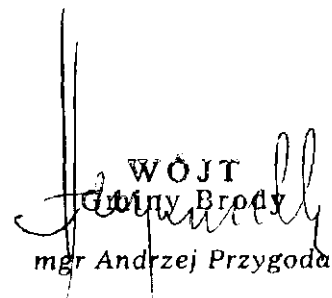 WÓJT
Gminy Brody
mgr Andrzej Przygoda